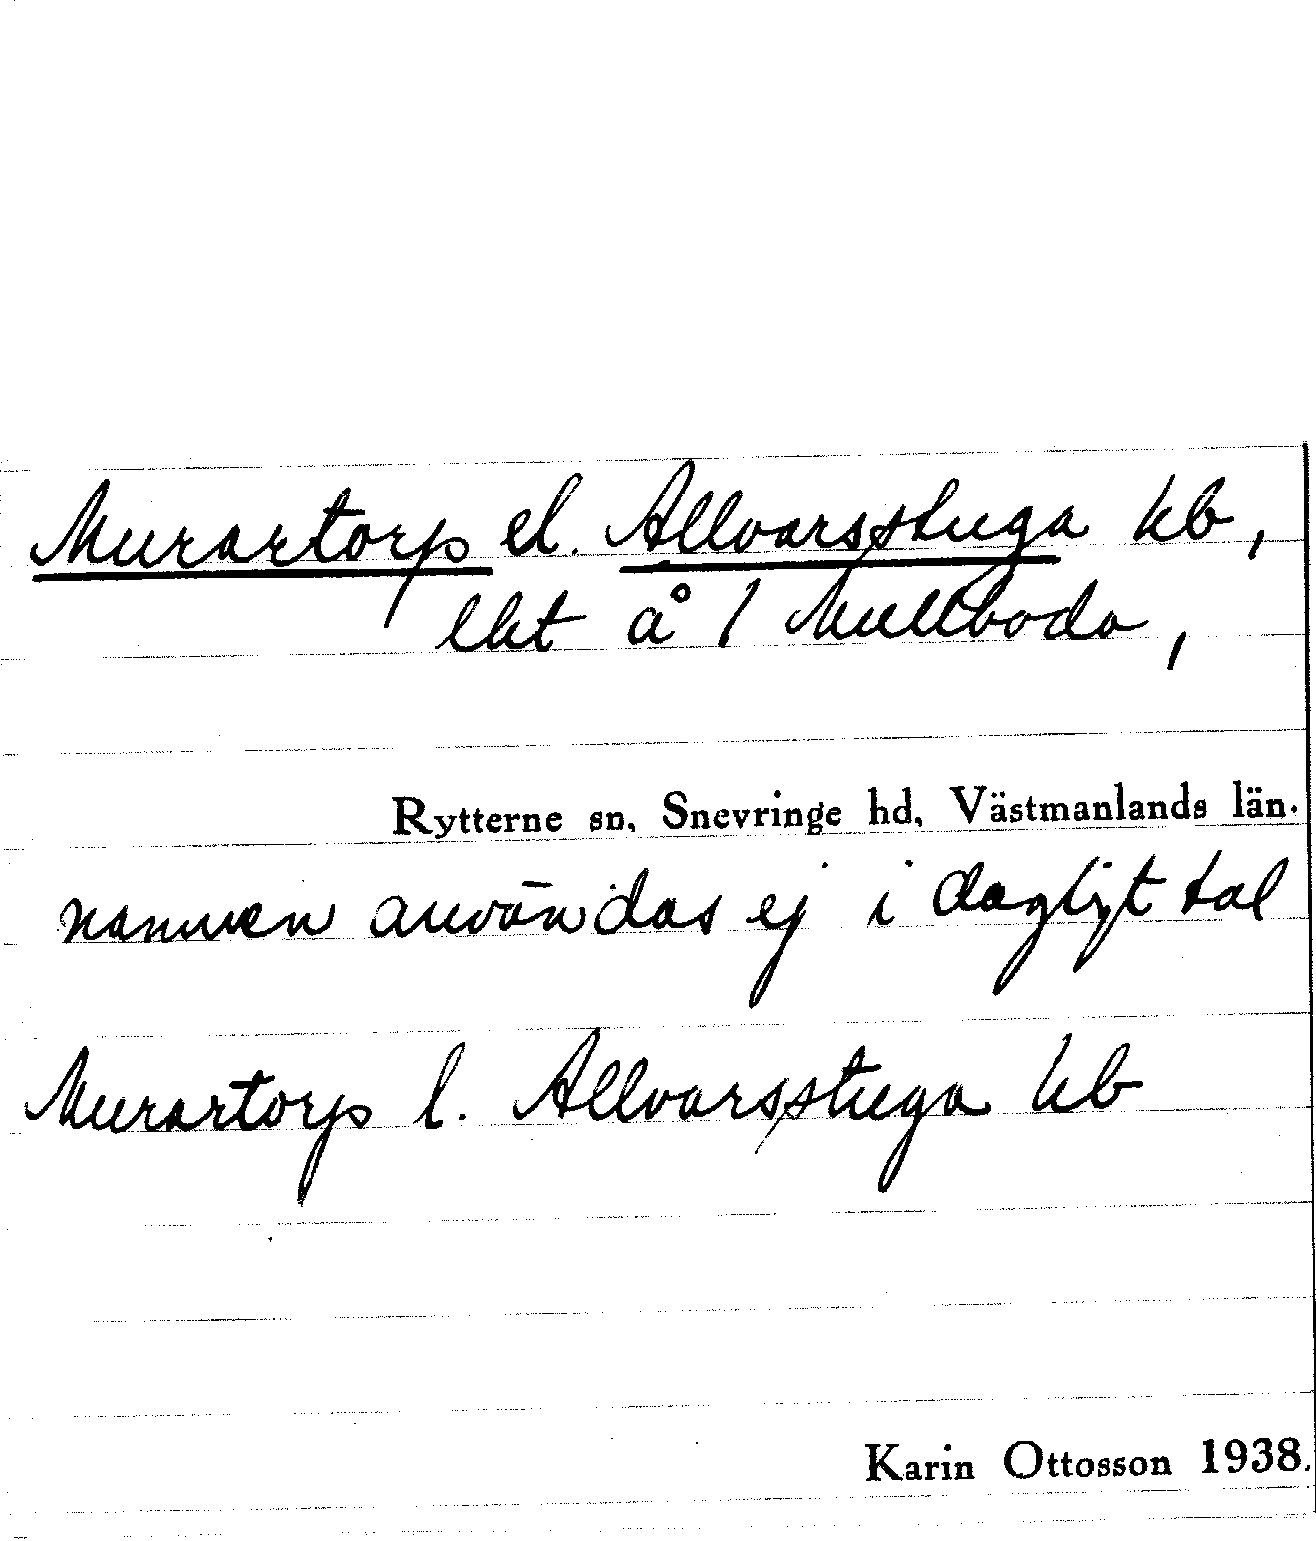 Murartorp el. Allvarsstuga kb,
lht å 1 Mullboda,
Rytterne sn, Snevringe hd, Västmanlands län.
namnen användas ej i dagligt tal
Murartorp l. Allvarsstuga kb
Karin Ottosson 1938.